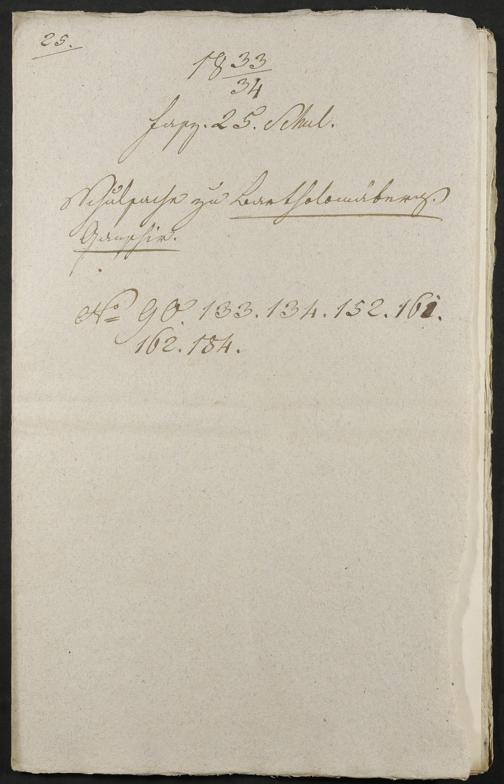 25.
18 33/34
Fasz. 25. Schul.
Schulsache zu Bartholomäberg.
Gantschir.
No 90. 133. 134. 152. 161.
162. 184.